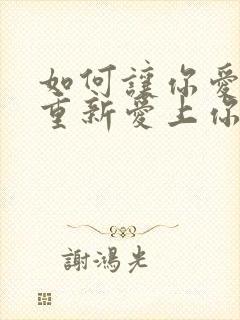 如何讓你愛
重新愛上你
謝鴻光